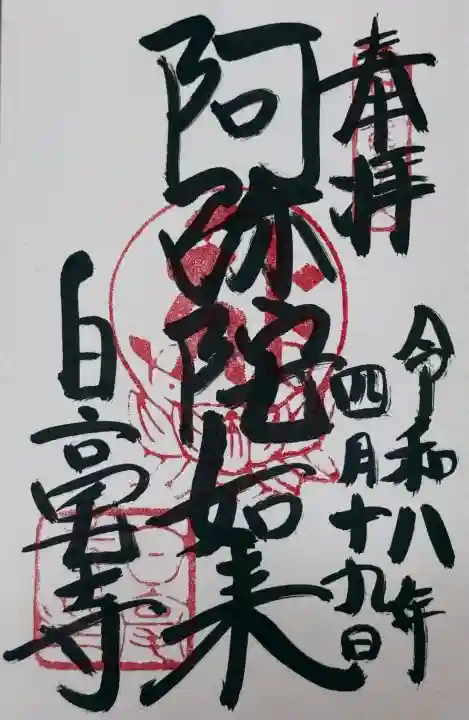 奉拝
令和八年
四月十九日
阿弥陀如来
白毫寺